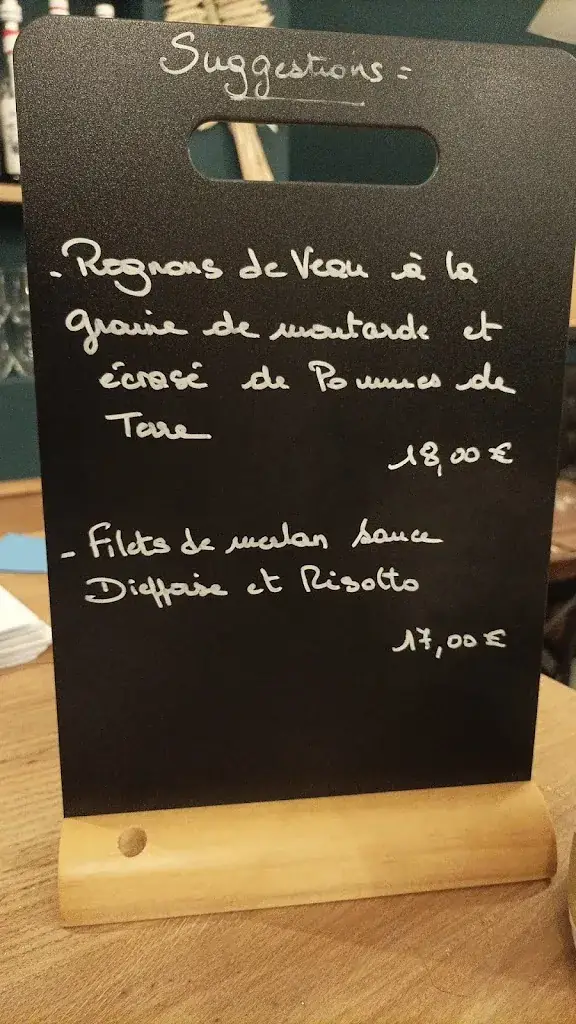 Suggestions =
- Rognons de Veau à la
graine de moutarde et
écrasé de Pommes de
Terre
18,00 €
- Filets de merlan sauce
Dieppoise et Risotto
17,00 €